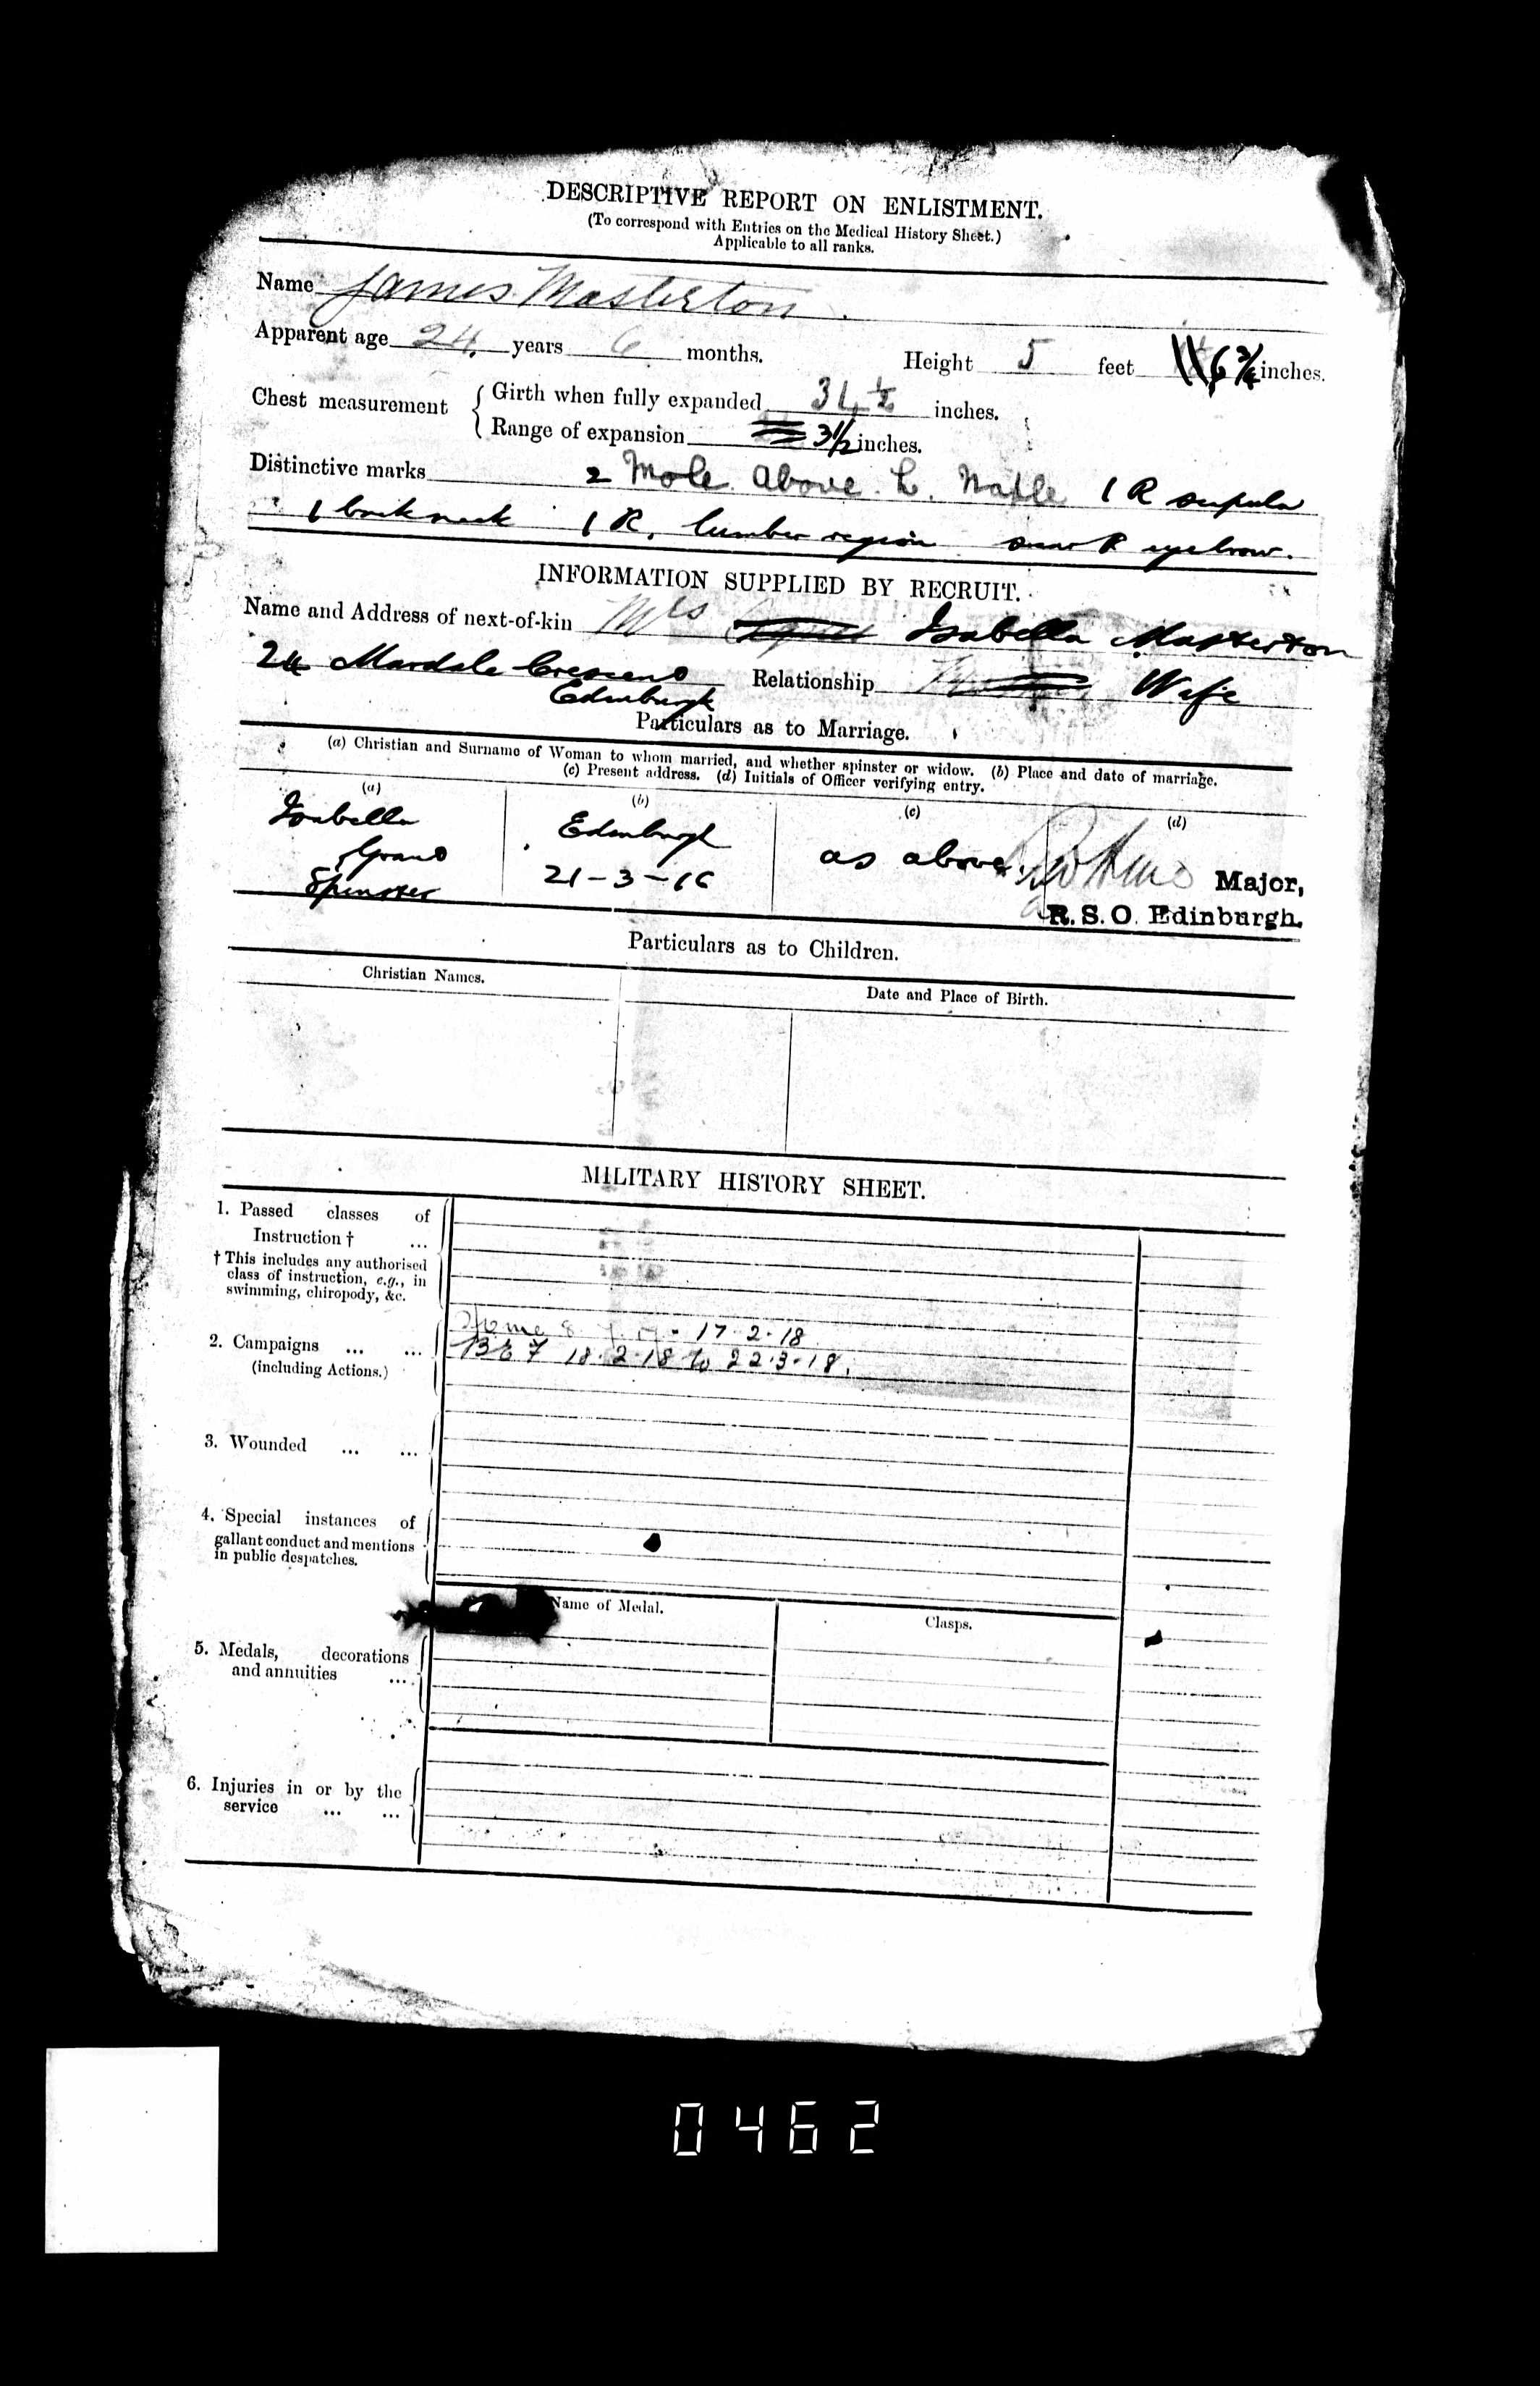 DESCRIPTIVE REPORT ON ENLISTMENT.
(To correspond with Entries on the Medical History Sheet.)
Applicable to all ranks.
Name James Masterton.
Apparent age 24 years 6 months. Height 5 feet 6 3/4 inches.
Chest measurement { Girth when fully expanded 34 1/2 inches.
Range of expansion 3 1/2 inches.
Distinctive marks 2 Mole Above L. Naple 1 R scapula
1 back neck 1 R. lumbar region scar R eyebrow.
INFORMATION SUPPLIED BY RECRUIT.
Name and Address of next-of-kin Mrs Isabella Masterton
24 Mardale Crescent Relationship Wife
Edinburgh
Particulars as to Marriage.
(a) Christian and Surname of Woman to whom married, and whether spinster or widow. (b) Place and date of marriage.
(c) Present address. (d) Initials of Officer verifying entry.
(a) (b) (c) (d)
Isabella Edinburgh
Grand 21-3-16 as above. Major,
Spinster R.S.O. Edinburgh.
Particulars as to Children.
Christian Names. Date and Place of Birth.
MILITARY HISTORY SHEET.
1. Passed classes of
Instruction † ...
† This includes any authorised
class of instruction, e.g., in
swimming, chiropody, &c.
Home 8 17.2.18
2. Campaigns ... ... BEF 18.2.18 to 22.3.18.
(including Actions.)
3. Wounded ... ...
4. Special instances of
gallant conduct and mentions
in public despatches.
Name of Medal. Clasps.
5. Medals, decorations
and annuities ...
6. Injuries in or by the
service ... ...
0462